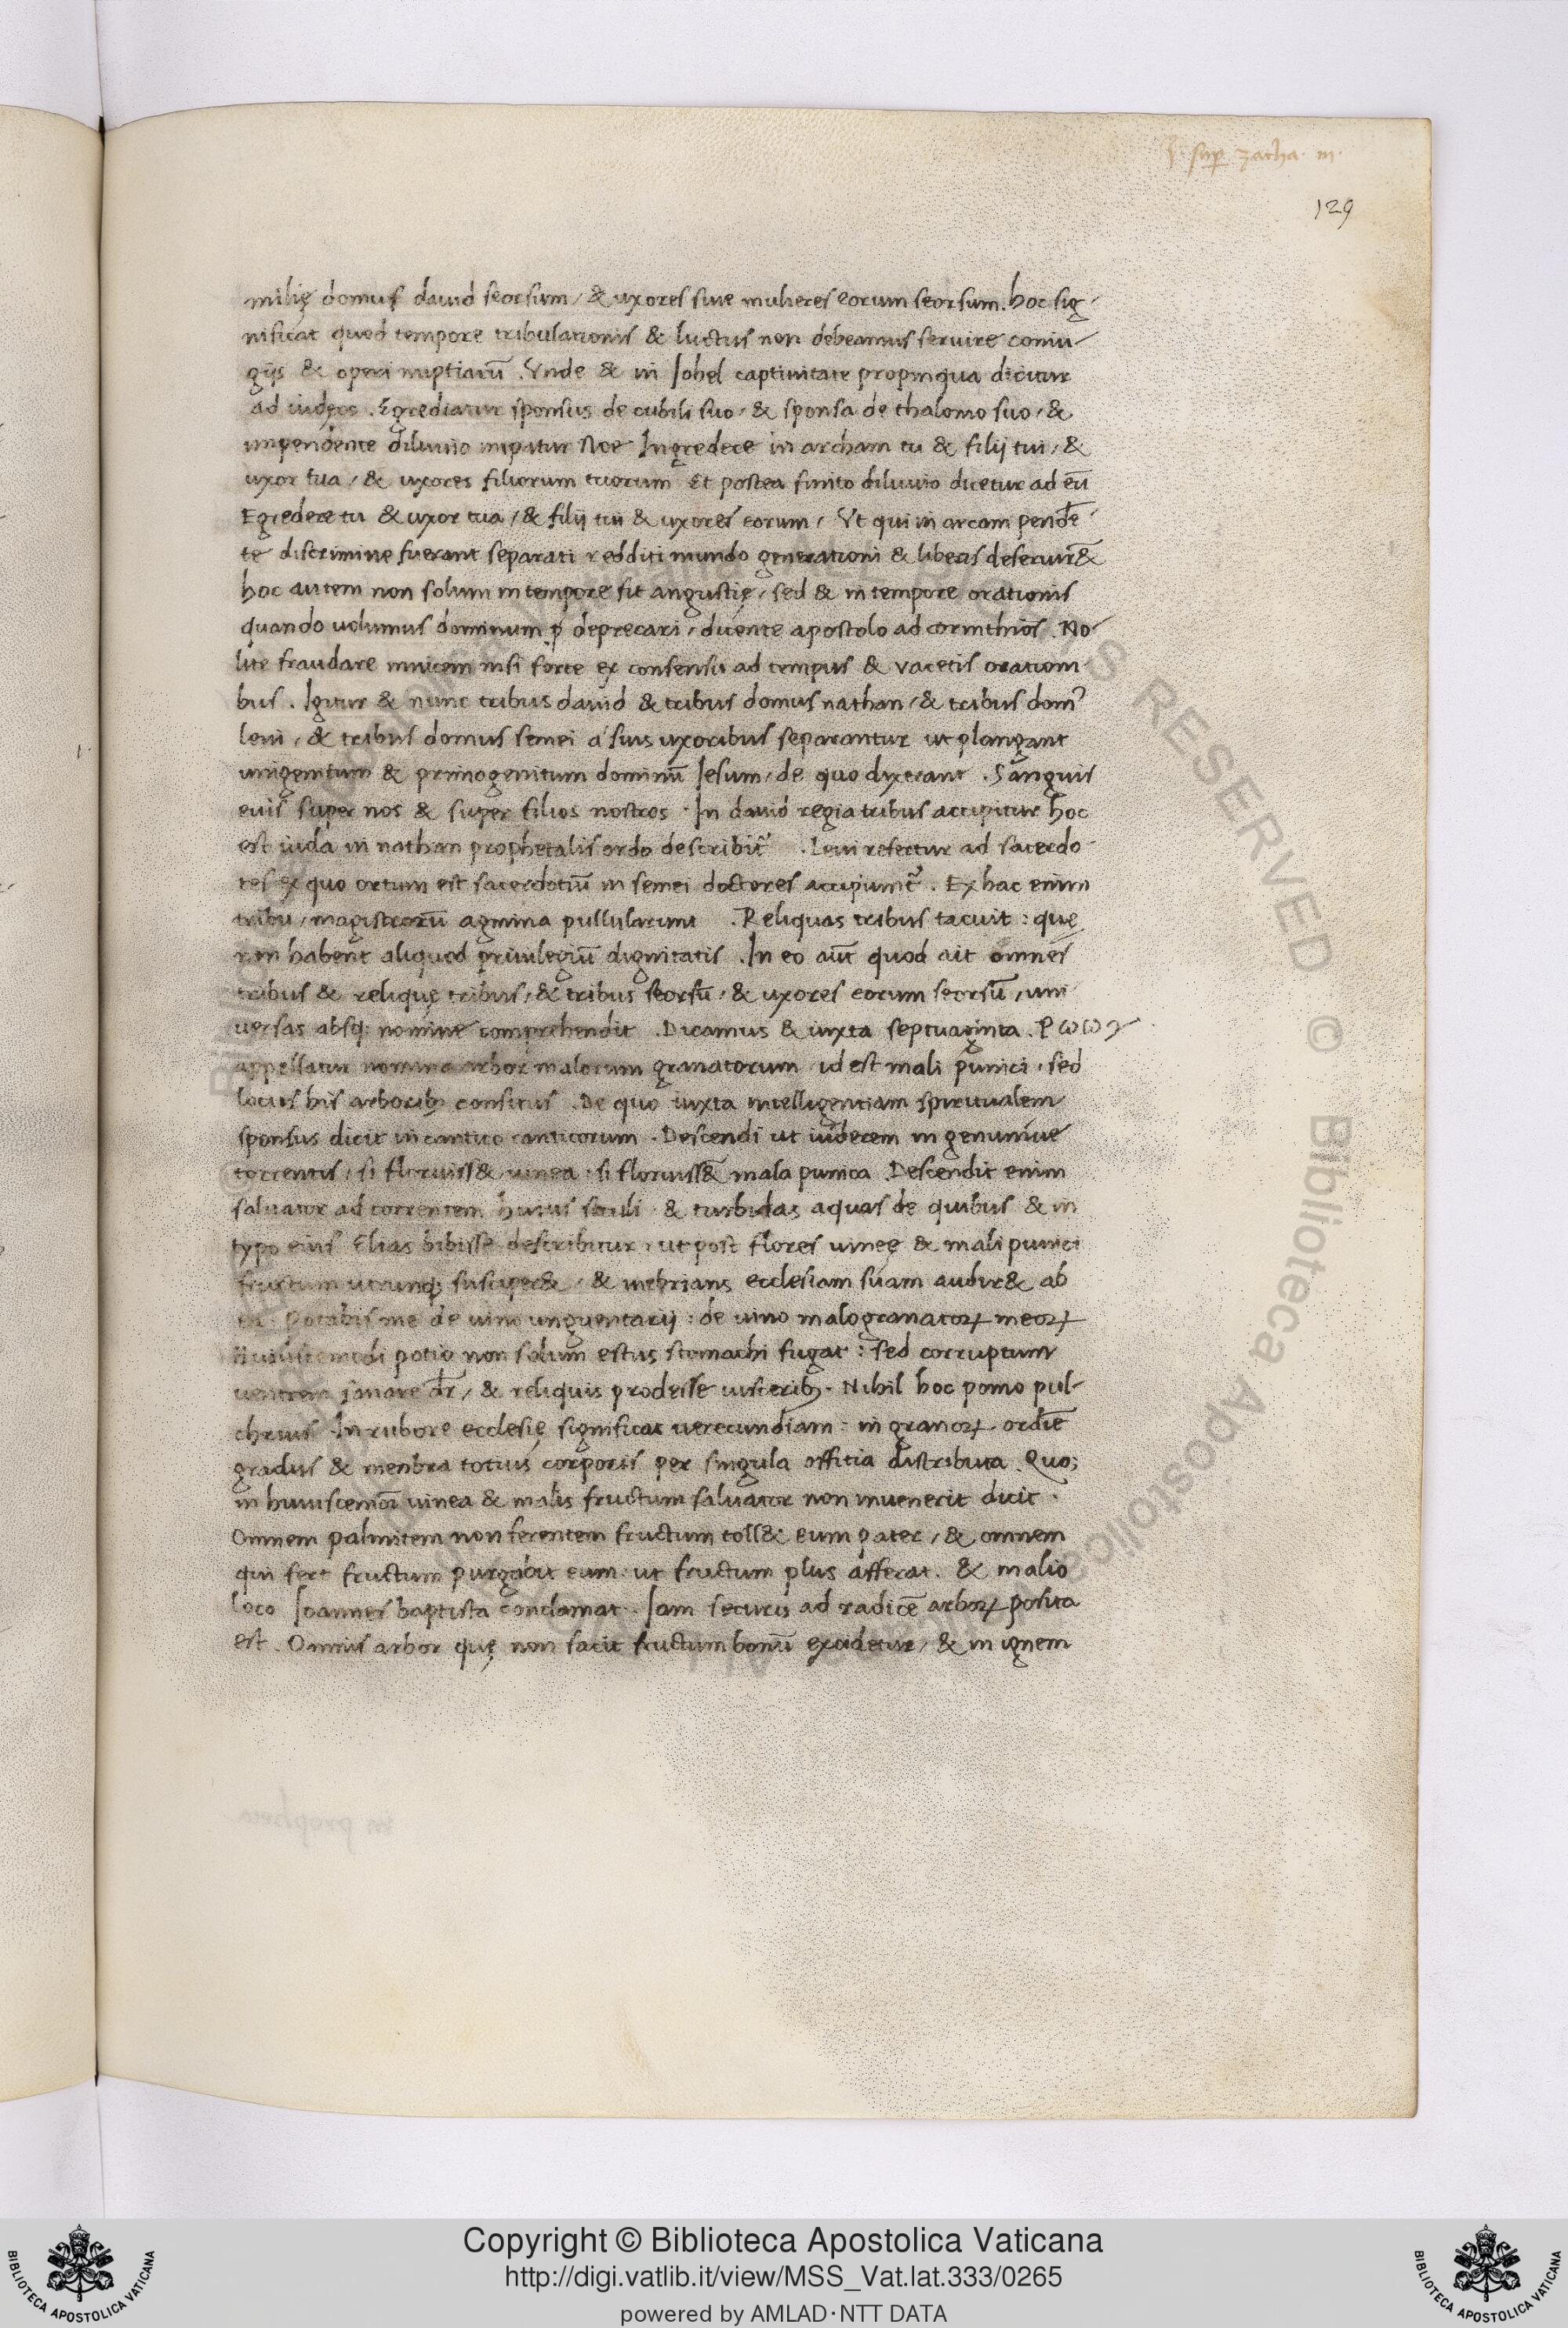 sup zacha. m.
129
milię domus dauid seorsum / & uxores siue mulieres eorum seorsum. hoc sig-
nificat quod tempore tribulationis & luctus non debeamus seruire coniu-
gijs & operi nuptiarū. Vnde & in Johel captiuitate propinqua dicitur
ad iudęos. Egrediatur sponsus de cubili suo / & sponsa de thalomo suo / &
impendente diluuio Noe Ingredere in archam tu & filij tui / &
uxor tua / & uxores filiorum tuorum Et postea finito diluuio dicetur ad eū
Egredere tu & uxor tua / & filij tui & uxores eorum / Vt qui in arcam pendē-
te discrimine fuerant separati redditi mundo generationi & liberis
hoc autem non solum in tempore fit angustię / sed & in tempore orationis
quando uolumus dominum deprecari / dicente apostolo ad corinthios. No-
lite fraudare inuicem nisi forte ex consensu ad tempus & vacetis orationi-
bus. Igitur & nunc tribus dauid & tribus domus nathan / & tribus dom9
leui / & tribus domus semei a suis uxoribus separantur ut plangant
unigenitum & primogenitum dominū Jesum / de quo dixerant. Sanguis
euis super nos & super filios nostros. In dauid regia tribus accipitur hoc
est iuda in nathan prophetalis ordo describit᷑. Leui refertur ad sacerdo-
tes ex quo ortum est sacerdotiū in semei doctores accipiunt᷑. Ex hac enim
tribu / magistrorū agmina pullularunt. Reliquas tribus tacuit: quę
non habent aliquod priuilegiū dignitatis. In eo aūt quod ait omnes
tribus & reliquę tribus / & tribus seorsū / & uxores eorum seorsū / uni
uersas absq; nomine comprehendit. Dicamus & iuxta septuaginta. Ροων
appellatur nomina arbor malorum granatorum id est mali punici, sed
locus his arborib; consitus. De quo iuxta intelligentiam spiritualem
sponsus dicit in cantico canticorum. Descendi ut iuderem in genimine
torrentis / si floruiss& uinea: si floruiss& mala punica. Descendit enim
saluator ad torrentem huius sęculi & turbidas aquas de quibus & in
typo eius Elias bibisse describitur, ut post flores uineę & mali punici
fructum utrunq; susciper& / & inebrians ecclesiam suam audir& ab
ea. Potabis me de uino unguentarij: de uino malogranatoꝝ meoꝝ
Huiuscemodi potio non solum estus stomachi fugat: sed corruptum
uentrem sanare dr̄ / & reliquis prodeisse uisterib;. Nihil hoc pomo pul-
chrius. In rubore ecclesię significat uerecundiam: in granoꝝ ordīe
gradus & menbra totius corporis per singula offitia distributa. Quo;
in huiuscemōi uinea & malis fructum saluator non inuenerit dicit.
Omnem palmitem non ferentem fructum toll& eum pater / & omnem
qui fert fructum purgabit eum ut fructum plus afferat. & malio
loco Joannes baptista conclamat. Jam securis ad radicē arboꝝ posita
est. Omnis arbor quę non facit fructum bonū excidetur / & in ignem
Copyright © Biblioteca Apostolica Vaticana
http://digi.vatlib.it/view/MSS_Vat.lat.333/0265
powered by AMLAD·NTT DATA